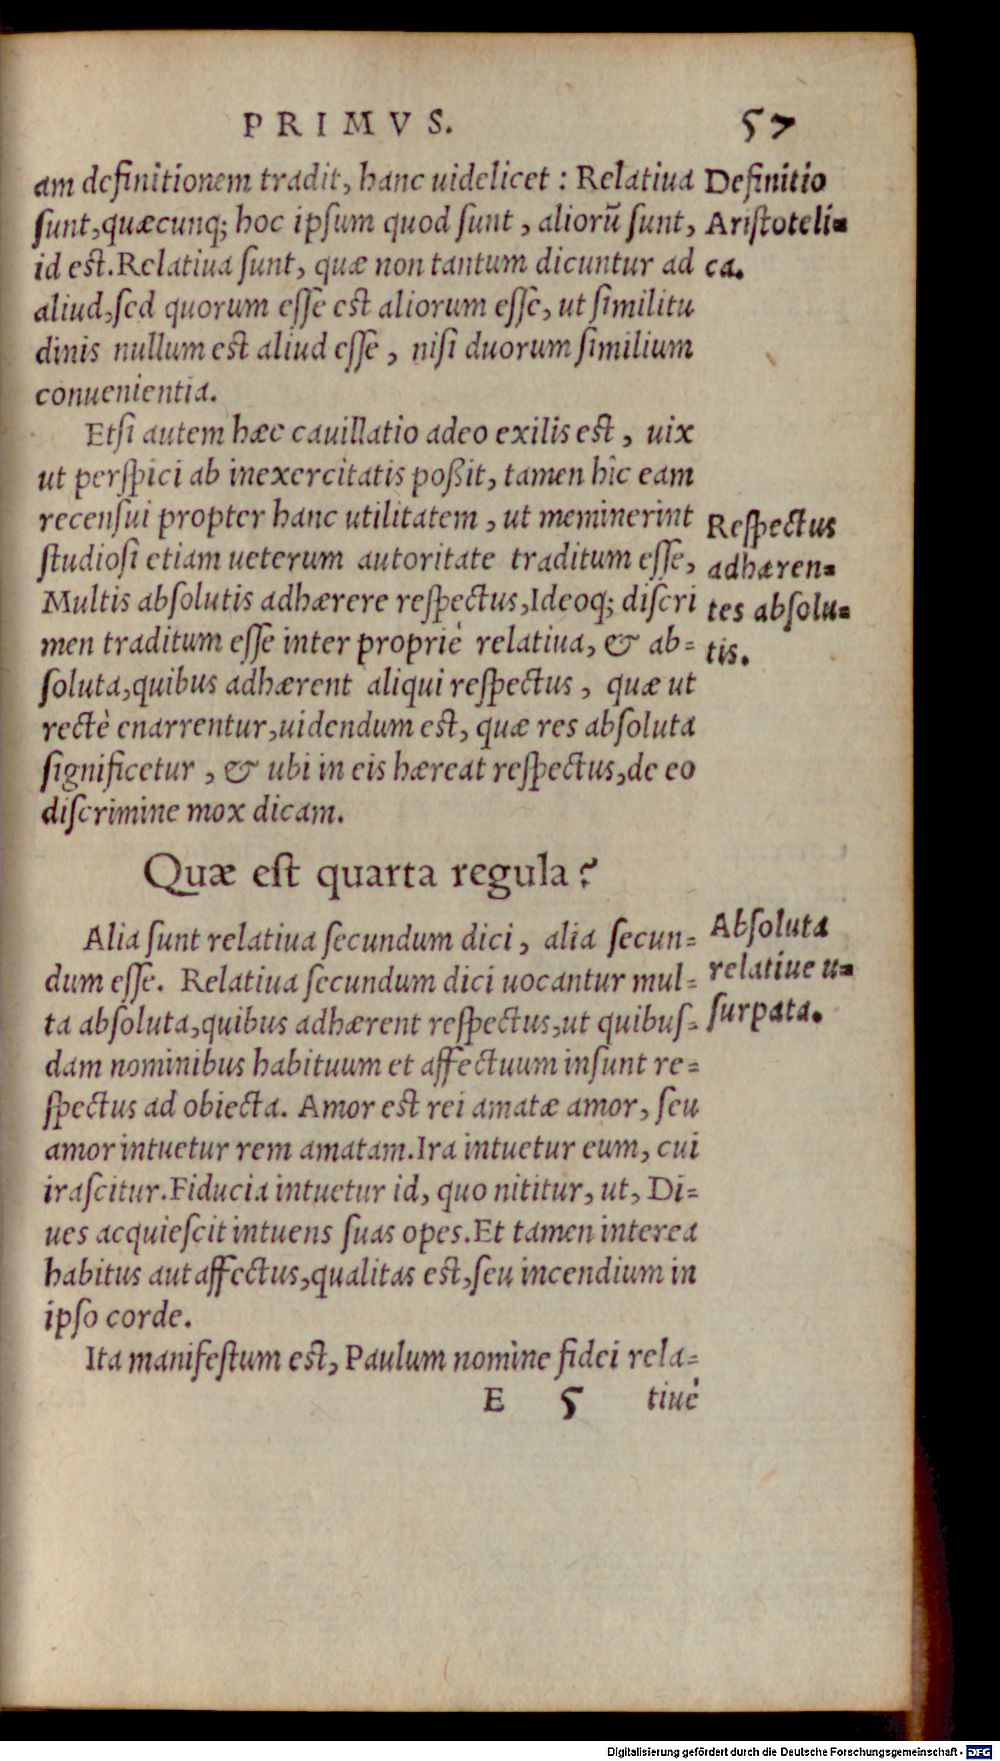 PRIMVS. 57
am definitionem tradit, hanc uidelicet : Relatiua
sunt,quæcunq; hoc ipsum quod sunt , aliorũ sunt,
id est.Relatiua sunt, quæ non tantum dicuntur ad
aliud,sed quorum esse est aliorum esse, ut similitu
dinis nullum est aliud esse , nisi duorum similium
conuenientia.
Definitio
Aristoteli=
ca.
Etsi autem hæc cauillatio adeo exilis est , uix
ut perspici ab inexercitatis poßit, tamen hîc eam
recensui propter hanc utilitatem , ut meminerint
studiosi etiam ueterum autoritate traditum esse,
Multis absolutis adhærere respectus,Ideoq; discri
men traditum esse inter propriè relatiua, & ab=
soluta,quibus adhærent aliqui respectus , quæ ut
rectè enarrentur,uidendum est, quæ res absoluta
significetur , & ubi in eis hæreat respectus,de eo
discrimine mox dicam.
Respectus
adhæren=
tes absolu=
tis.
Quæ est quarta regula?
Alia sunt relatiua secundum dici , alia secun=
dum esse. Relatiua secundum dici uocantur mul=
ta absoluta,quibus adhærent respectus,ut quibus=
dam nominibus habituum et affectuum insunt re=
spectus ad obiecta. Amor est rei amatæ amor, seu
amor intuetur rem amatam.Ira intuetur eum, cui
irascitur.Fiducia intuetur id, quo nititur, ut, Di=
ues acquiescit intuens suas opes.Et tamen interea
habitus aut affectus,qualitas est,seu incendium in
ipso corde.
Absoluta
relatiue u=
surpata.
Ita manifestum est, Paulum nomine fidei rela=
E 5 tiuè
Digitalisierung gefördert durch die Deutsche Forschungsgemeinschaft - DFG